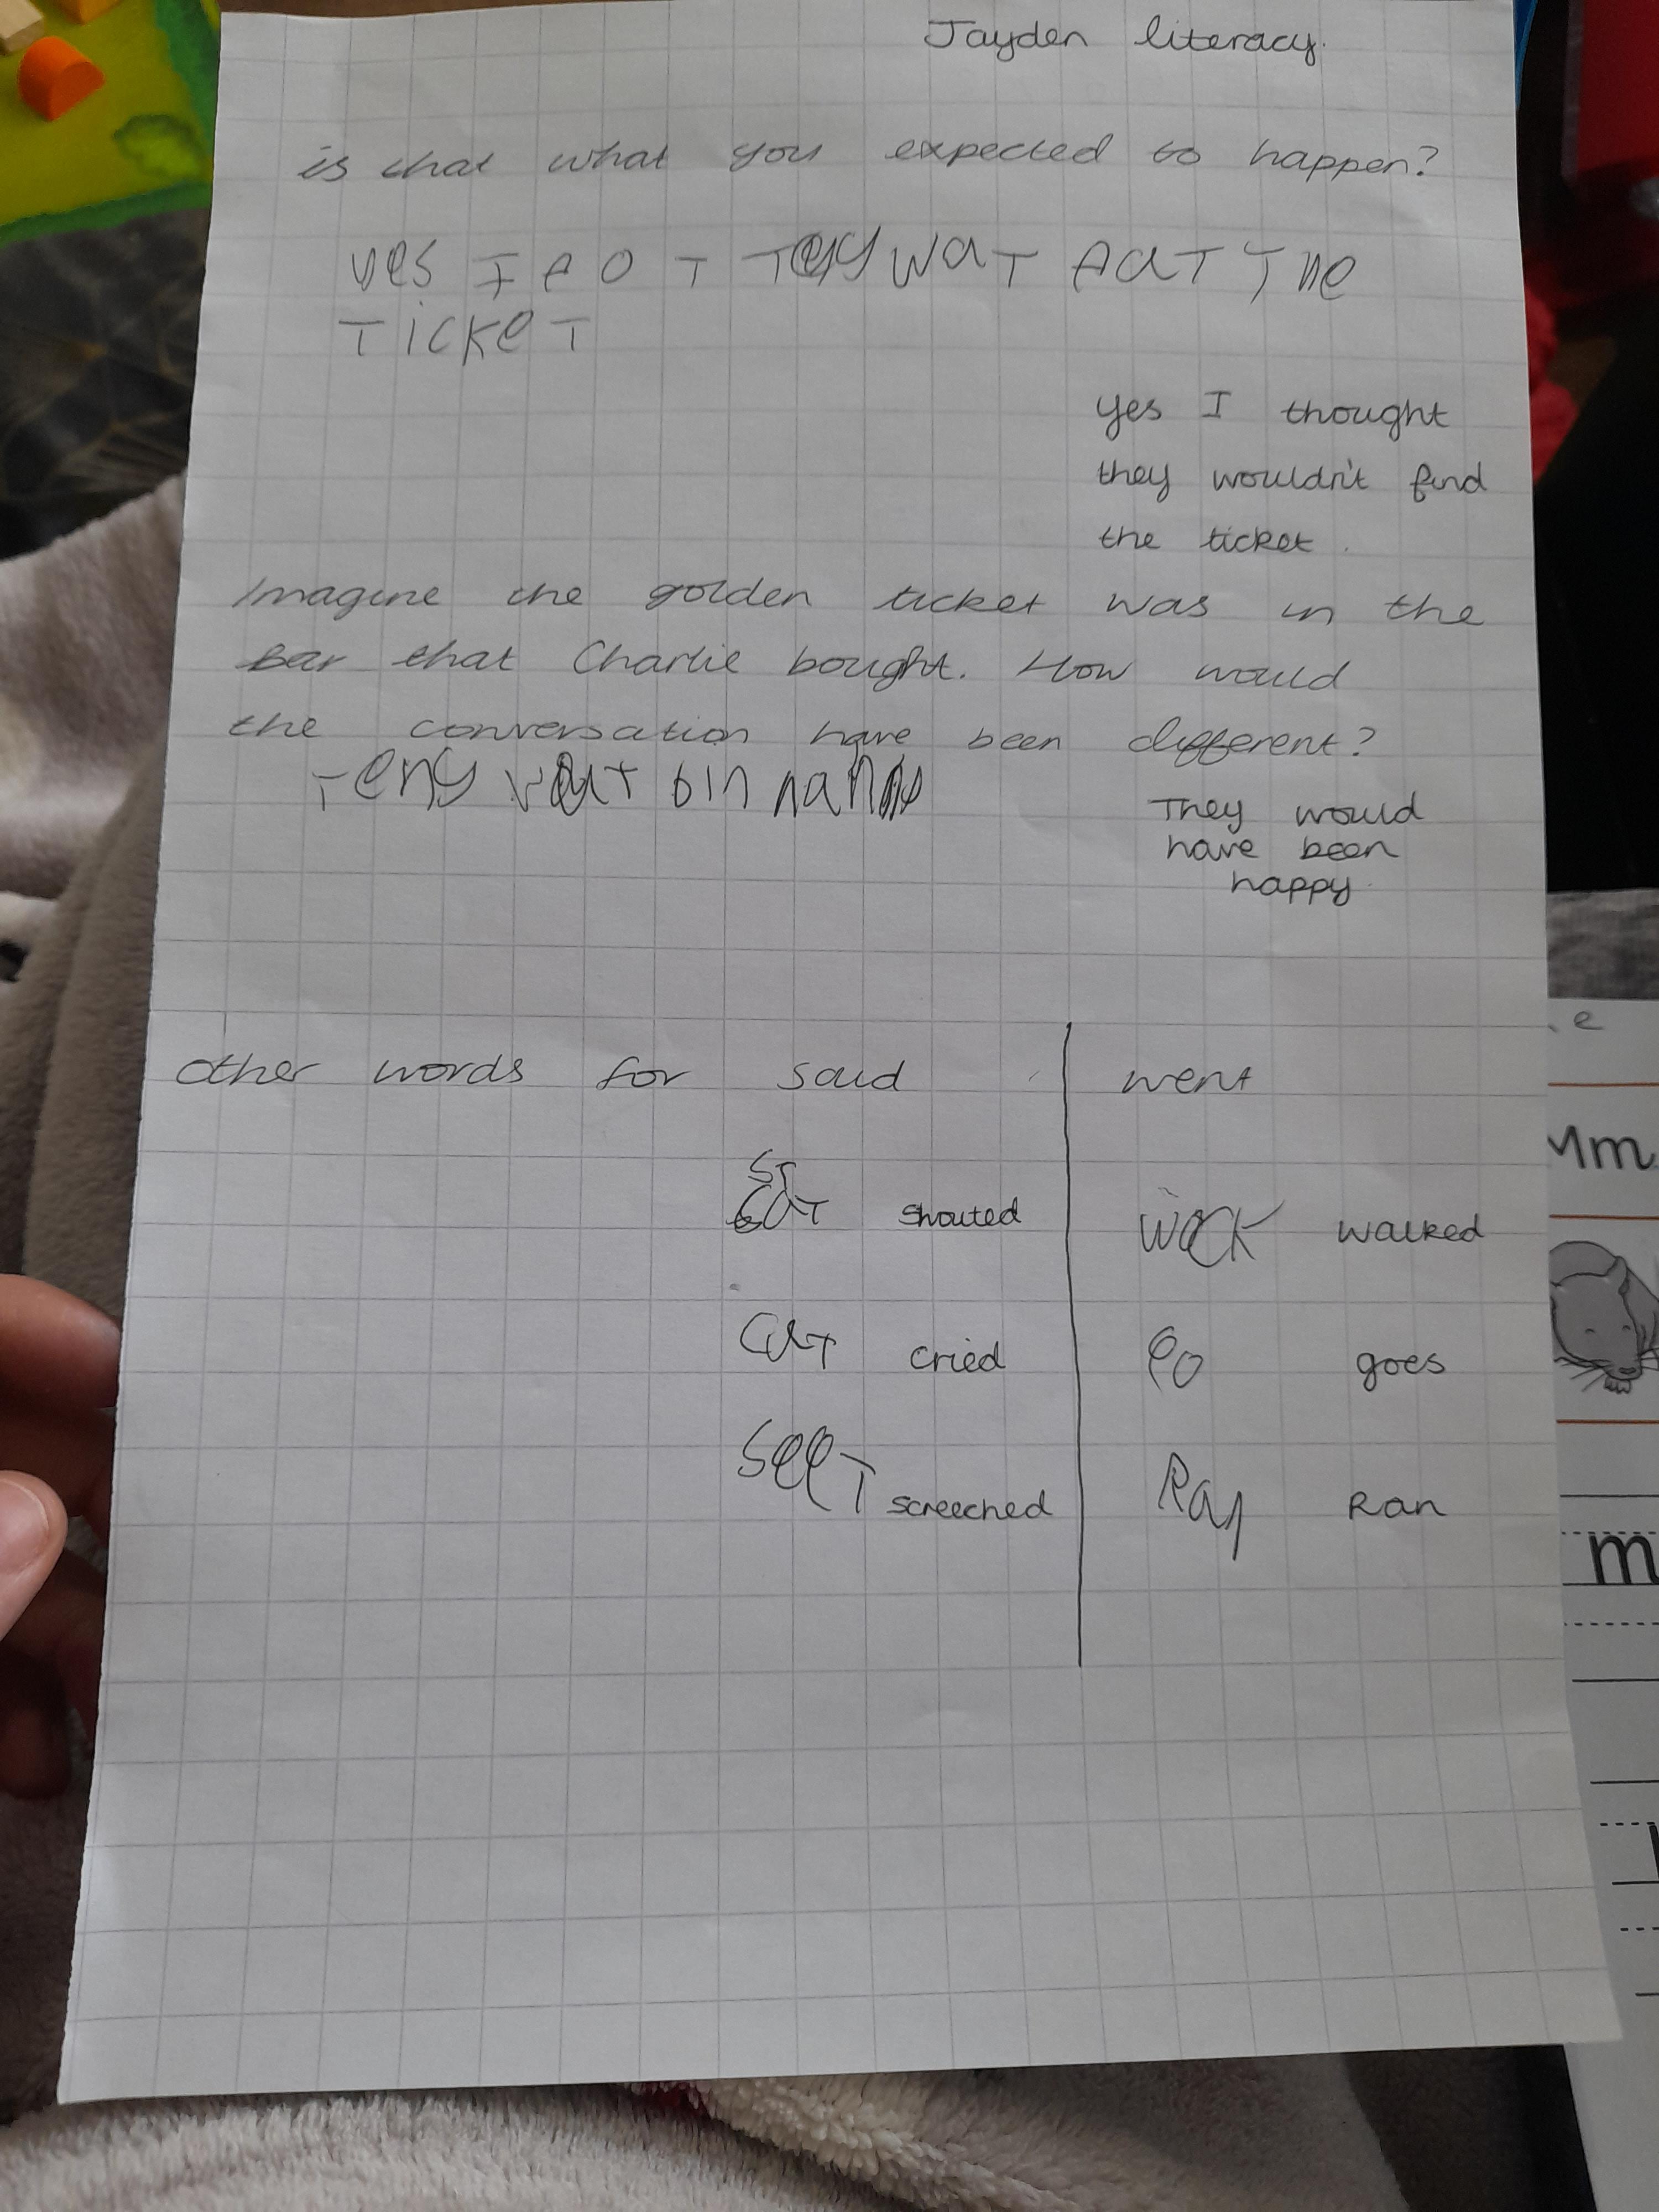 Jayden literacy.
is that what you expected to happen?
yes I
TICKET
yes I thought
they wouldn't find
the ticket.
Imagine the golden ticket was in the
Bar that Charlie bought. How would
the conversation have been different?
bin
They would
have been
happy.
other words for said
went
shouted
walked
cried
goes
screeched
Ran
Ran
e
Mm
m